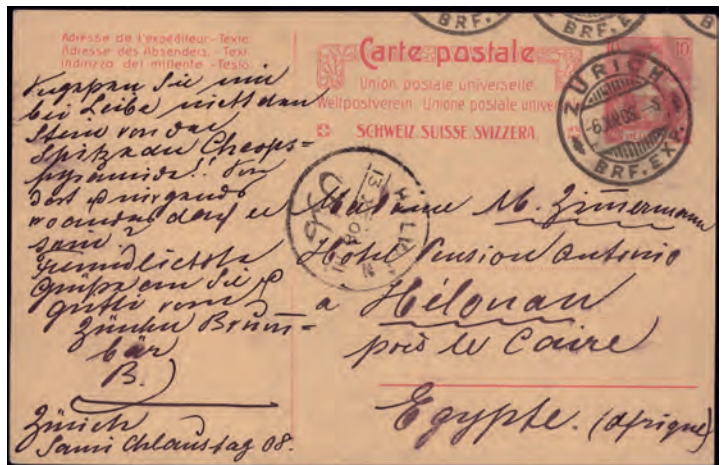 BRF. EXP.
BRF. E
BRF.
Adresse de l'expéditeur - Texte.
Adresse des Absenders. - Text.
Indirizzo del mittente - Testo.
Carte postale
Union postale universelle.
Weltpostverein. Unione postale univer
SCHWEIZ. SUISSE. SVIZZERA.
10
ZÜRICH
BRF. EXP.
Sie mir
bei Leibe nicht den
Stein von der
Spitze der Cheops=
pyramide!! Von
dort & nirgends
woanders darf er
sein?
Freundlichste
Grüße an Sie &
vom
Zürcher Brum=
bär
B.
Zürich
Sami Chlaustag 08.
Madame M. Zimermann
Hôtel Pension Antonio
a Hélouan
près le Caire
Egypte. (Afrique)